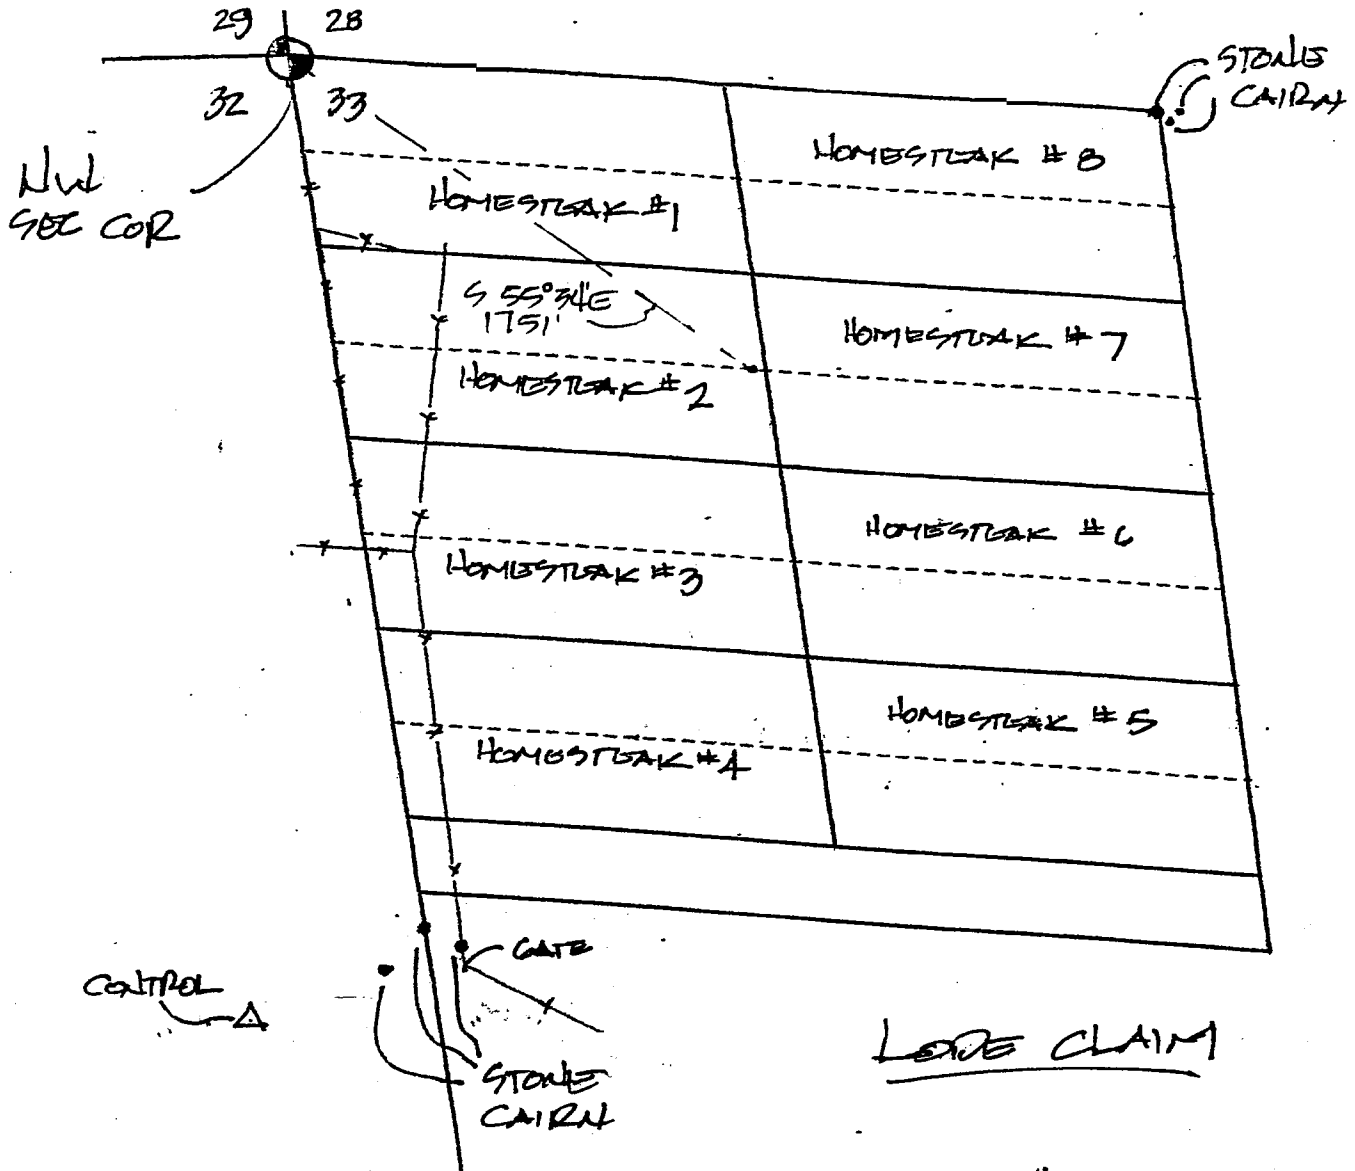 29 28
32 33
NW
SEC COR
STONE
CAIRN
HOMESTEAK #8
HOMESTEAK #1
S 55°34'E
1751'
HOMESTEAK #7
HOMESTEAK #2
HOMESTEAK #6
HOMESTEAK #3
HOMESTEAK #5
HOMESTEAK #4
GATE
CONTROL
STONE
CAIRN
LODE CLAIM